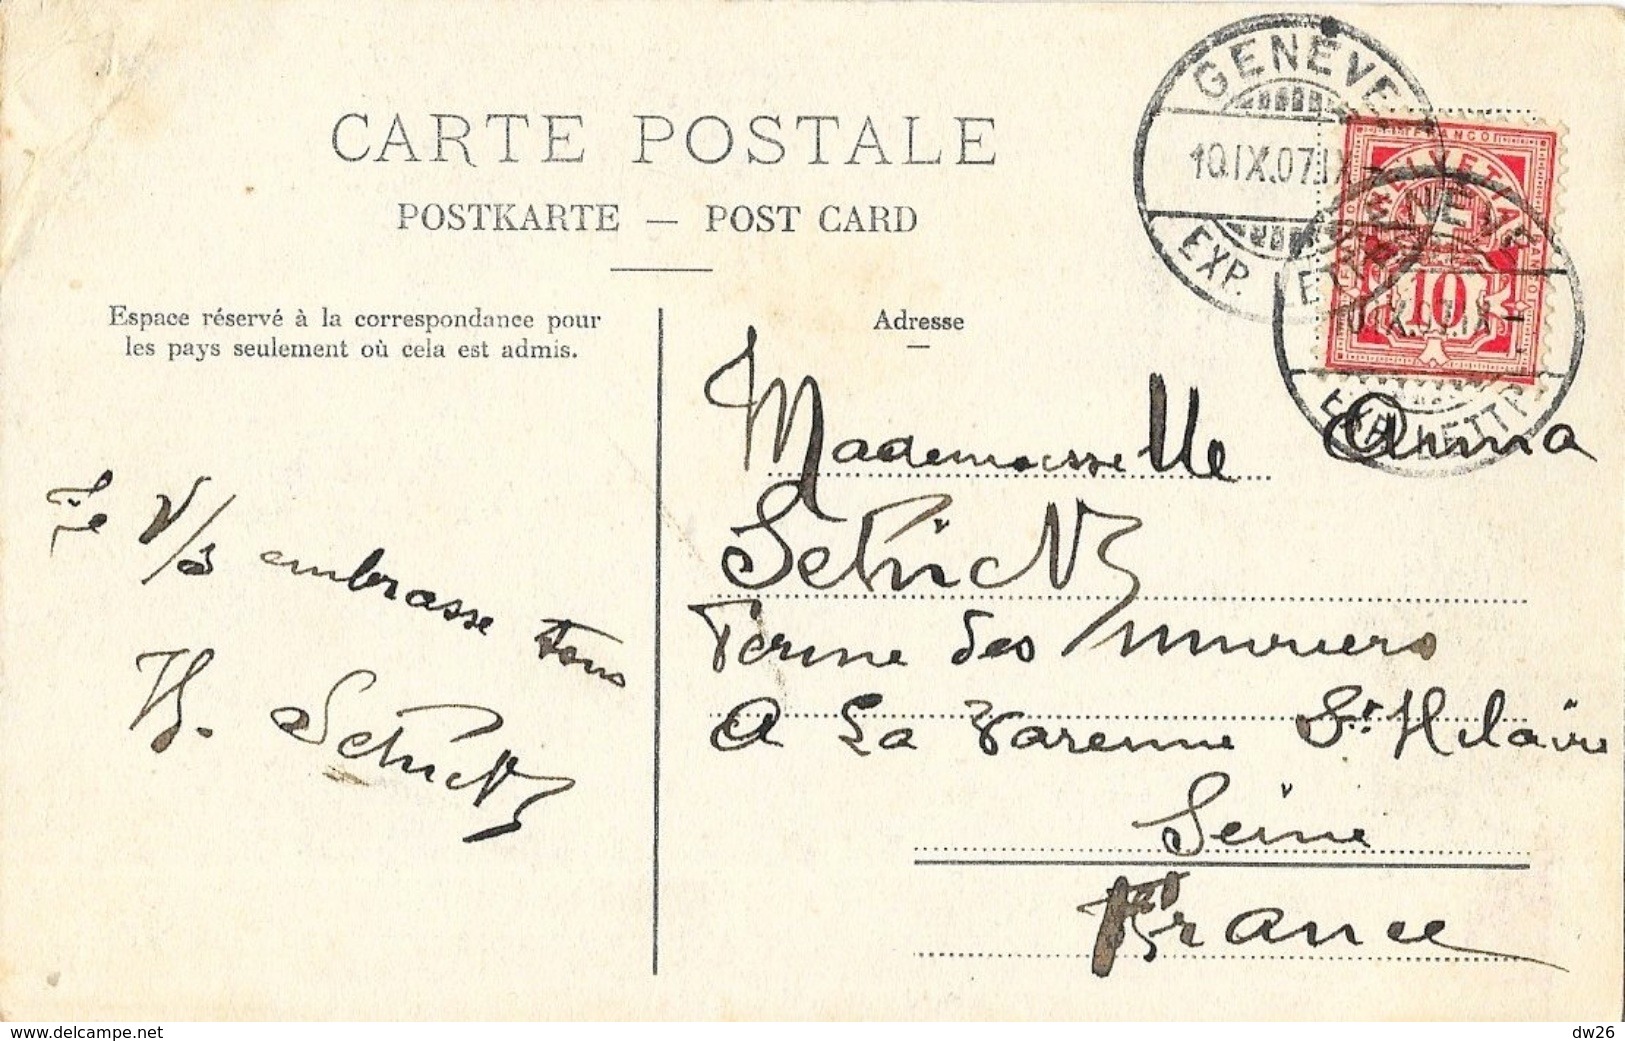 CARTE POSTALE
POSTKARTE — POST CARD
Espace réservé à la correspondance pour
les pays seulement où cela est admis.
Adresse
GENÈVE
10.IX.07.IX
EXP. LETTR.
FRANCO
HELVETIA
10
GENÈVE
EXP. LETTR.
Mademoiselle Anna
Schick
Ferme des muriers
A La Varenne St Hilaire
Seine
France
Je V/s embrasse tous
Schick
www.delcampe.net
dw26